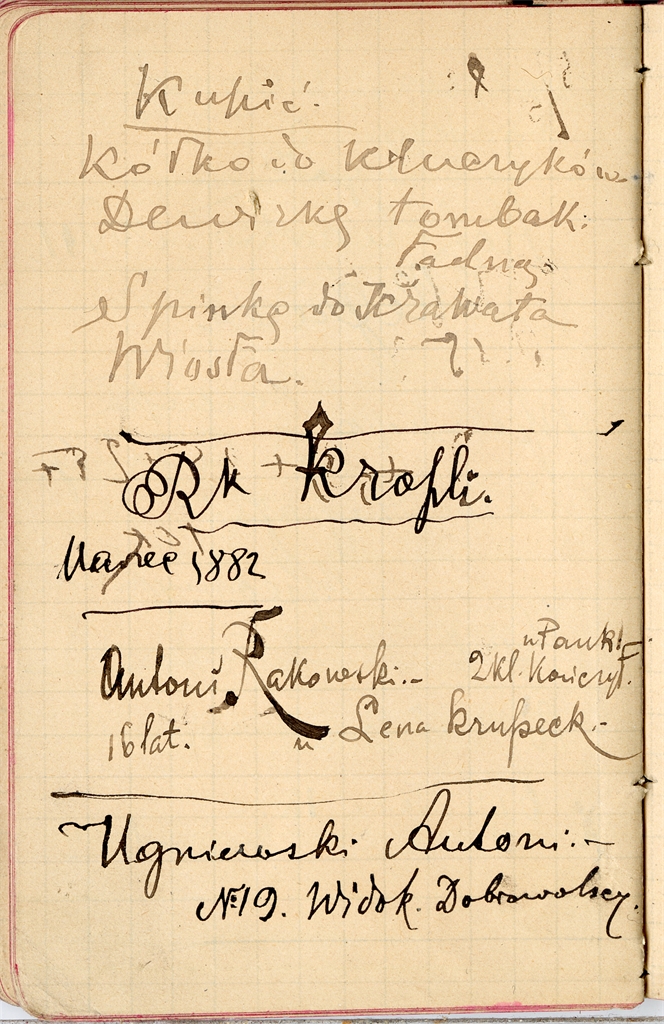 Kupić.
Kółko do kluczyków
Dewizkę tombak.
ładną.
Spinkę do Krawata
Wiosła.
Rk kropli.
Marzec 1882
Antoni Rakowski.-
2 kl. kończył.
16 lat. u Lena Krupeck.-
Ugniewski Antoni.-
№19. Widok. Dobrowolscy.